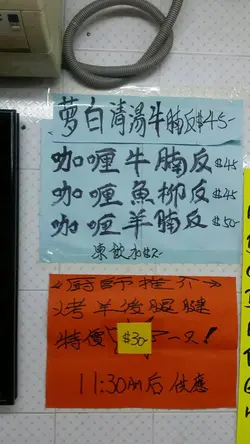 萝白清湯牛腩反$45-
咖喱牛腩反$45
咖喱魚柳反$45
咖喱羊腩反$50-
凍飲加$2-
《厨師推介》
烤羊後腿腱
特價$30-一只!
11:30Am后供應